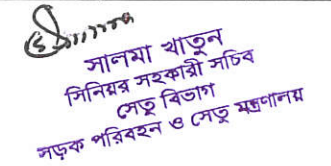 সালমা খাতুন
সিনিয়র সহকারী সচিব
সেতু বিভাগ
সড়ক পরিবহন ও সেতু মন্ত্রণালয়